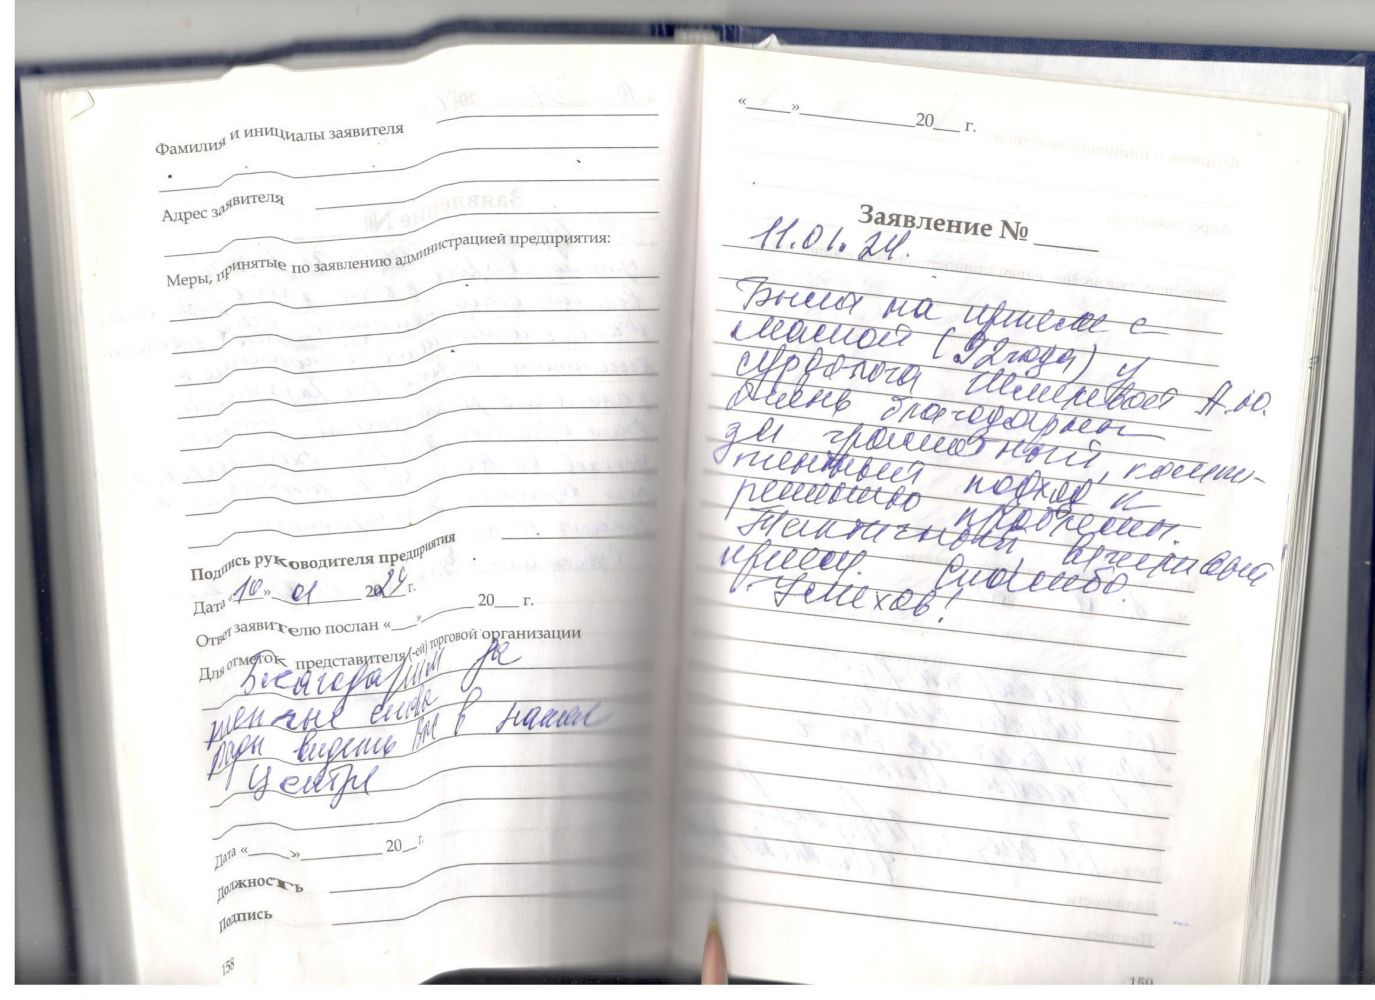 Фамилия и инициалы заявителя
Адрес заявителя
Меры, принятые по заявлению администрацией предприятия:
Подпись руководителя предприятия
Дата «10» 01 2024 г.
Ответ заявителю послан «___» ______ 20___ г.
Для отметок представителя(-ей) торговой организации
Благодарим за
теплые слова
рады видеть Вас в нашем
Центре
Дата «_____»__________ 20__ г.
Должность
Подпись
158
«_____»______________20___ г.
Заявление № ______
11.01.24.
Была на приеме с
мамой (92 года) у
сурдолога Шмелевой А.Ю.
Очень благодарны
за грамотный, компе-
тентный подход к
решению проблемы.
Тактичный, вежливый
прием. Спасибо.
Успехов!
159